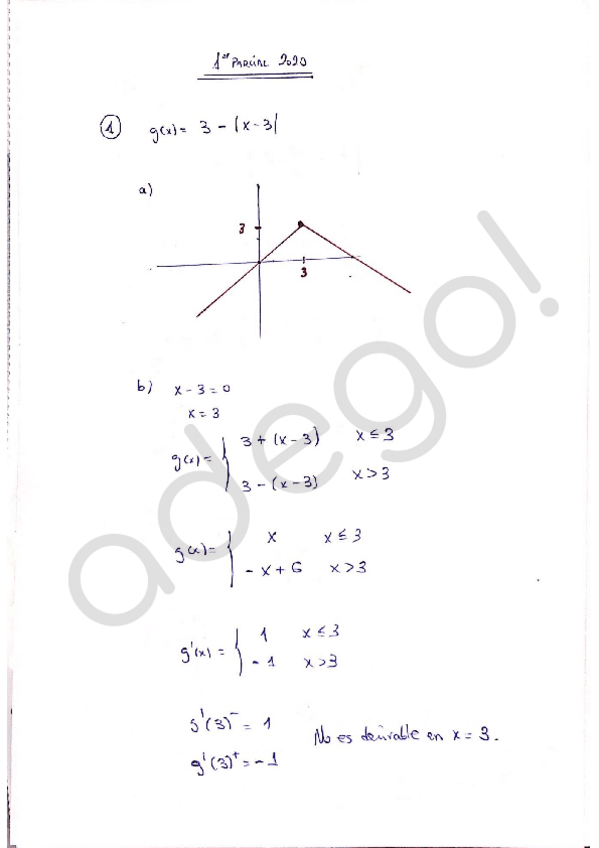 1er PARCIAL 2020
1 g(x) = 3 - |x-3|
a)
3
3
b) x - 3 = 0
x = 3
g(x) = { 3 + (x-3) x ≤ 3
3 - (x-3) x > 3
g(x) = { x x ≤ 3
- x + 6 x > 3
g'(x) = { 1 x ≤ 3
- 1 x > 3
g'(3)⁻ = 1
g'(3)⁺ = -1
No es derivable en x = 3.
adego!